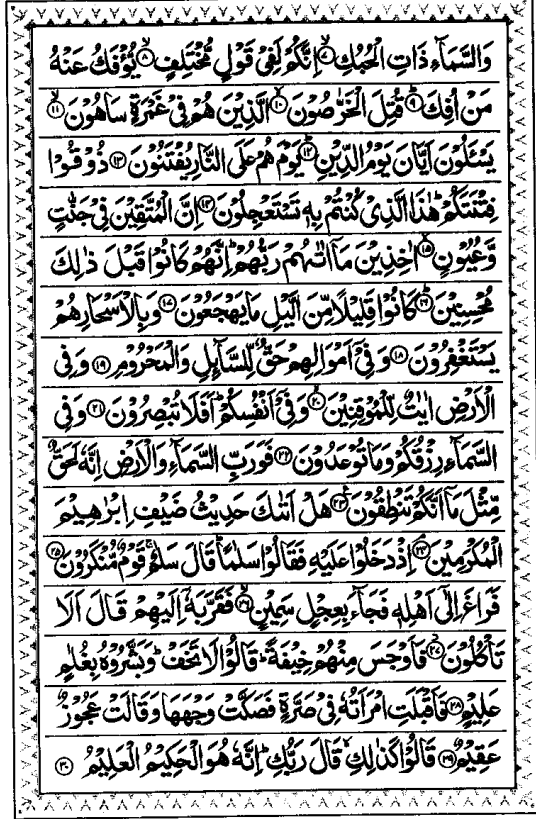 وَالسَّمَآءِ ذَاتِ الْحُبُكِ ۙ﴿۷﴾ اِنَّكُمْ لَفِیْ قَوْلٍ مُّخْتَلِفٍ ۙ﴿۸﴾ یُّؤْفَكُ عَنْهُ
مَنْ اُفِكَ ؕ﴿۹﴾ قُتِلَ الْخَرّٰصُوْنَ ۙ﴿۱۰﴾ الَّذِیْنَ هُمْ فِیْ غَمْرَةٍ سَاهُوْنَ ۙ﴿۱۱﴾
یَسْـَٔلُوْنَ اَیَّانَ یَوْمُ الدِّیْنِ ؕ﴿۱۲﴾ یَوْمَ هُمْ عَلَی النَّارِ یُفْتَنُوْنَ ﴿۱۳﴾ ذُوْقُوْا
فِتْنَتَكُمْ ؕ هٰذَا الَّذِیْ كُنْتُمْ بِهٖ تَسْتَعْجِلُوْنَ ﴿۱۴﴾ اِنَّ الْمُتَّقِیْنَ فِیْ جَنّٰتٍ
وَّعُیُوْنٍ ۙ﴿۱۵﴾ اٰخِذِیْنَ مَاۤ اٰتٰىهُمْ رَبُّهُمْ ؕ اِنَّهُمْ كَانُوْا قَبْلَ ذٰلِكَ
مُحْسِنِیْنَ ؕ﴿۱۶﴾ كَانُوْا قَلِیْلًا مِّنَ الَّیْلِ مَا یَهْجَعُوْنَ ﴿۱۷﴾ وَبِالْاَسْحَارِ هُمْ
یَسْتَغْفِرُوْنَ ﴿۱۸﴾ وَفِیْۤ اَمْوَالِهِمْ حَقٌّ لِّلسَّآىِٕلِ وَالْمَحْرُوْمِ ﴿۱۹﴾ وَفِی
الْاَرْضِ اٰیٰتٌ لِّلْمُوْقِنِیْنَ ۙ﴿۲۰﴾ وَفِیْۤ اَنْفُسِكُمْ ؕ اَفَلَا تُبْصِرُوْنَ ﴿۲۱﴾ وَفِی
السَّمَآءِ رِزْقُكُمْ وَمَا تُوْعَدُوْنَ ﴿۲۲﴾ فَوَرَبِّ السَّمَآءِ وَالْاَرْضِ اِنَّهٗ لَحَقٌّ
مِّثْلَ مَاۤ اَنَّكُمْ تَنْطِقُوْنَ ﴿۲۳﴾ هَلْ اَتٰىكَ حَدِیْثُ ضَیْفِ اِبْرٰهِیْمَ
الْمُكْرَمِیْنَ ۘ﴿۲۴﴾ اِذْ دَخَلُوْا عَلَیْهِ فَقَالُوْا سَلٰمًا ؕ قَالَ سَلٰمٌ ۚ قَوْمٌ مُّنْكَرُوْنَ ۚ﴿۲۵﴾
فَرَاغَ اِلٰۤی اَهْلِهٖ فَجَآءَ بِعِجْلٍ سَمِیْنٍ ۙ﴿۲۶﴾ فَقَرَّبَهٗۤ اِلَیْهِمْ قَالَ اَلَا
تَاْكُلُوْنَ ؗ﴿۲۷﴾ فَاَوْجَسَ مِنْهُمْ خِیْفَةً ؕ قَالُوْا لَا تَخَفْ ؕ وَبَشَّرُوْهُ بِغُلٰمٍ
عَلِیْمٍ ﴿۲۸﴾ فَاَقْبَلَتِ امْرَاَتُهٗ فِیْ صَرَّةٍ فَصَكَّتْ وَجْهَهَا وَقَالَتْ عَجُوْزٌ
عَقِیْمٌ ﴿۲۹﴾ قَالُوْا كَذٰلِكِ ۙ قَالَ رَبُّكِ ؕ اِنَّهٗ هُوَ الْحَكِیْمُ الْعَلِیْمُ ﴿۳۰﴾